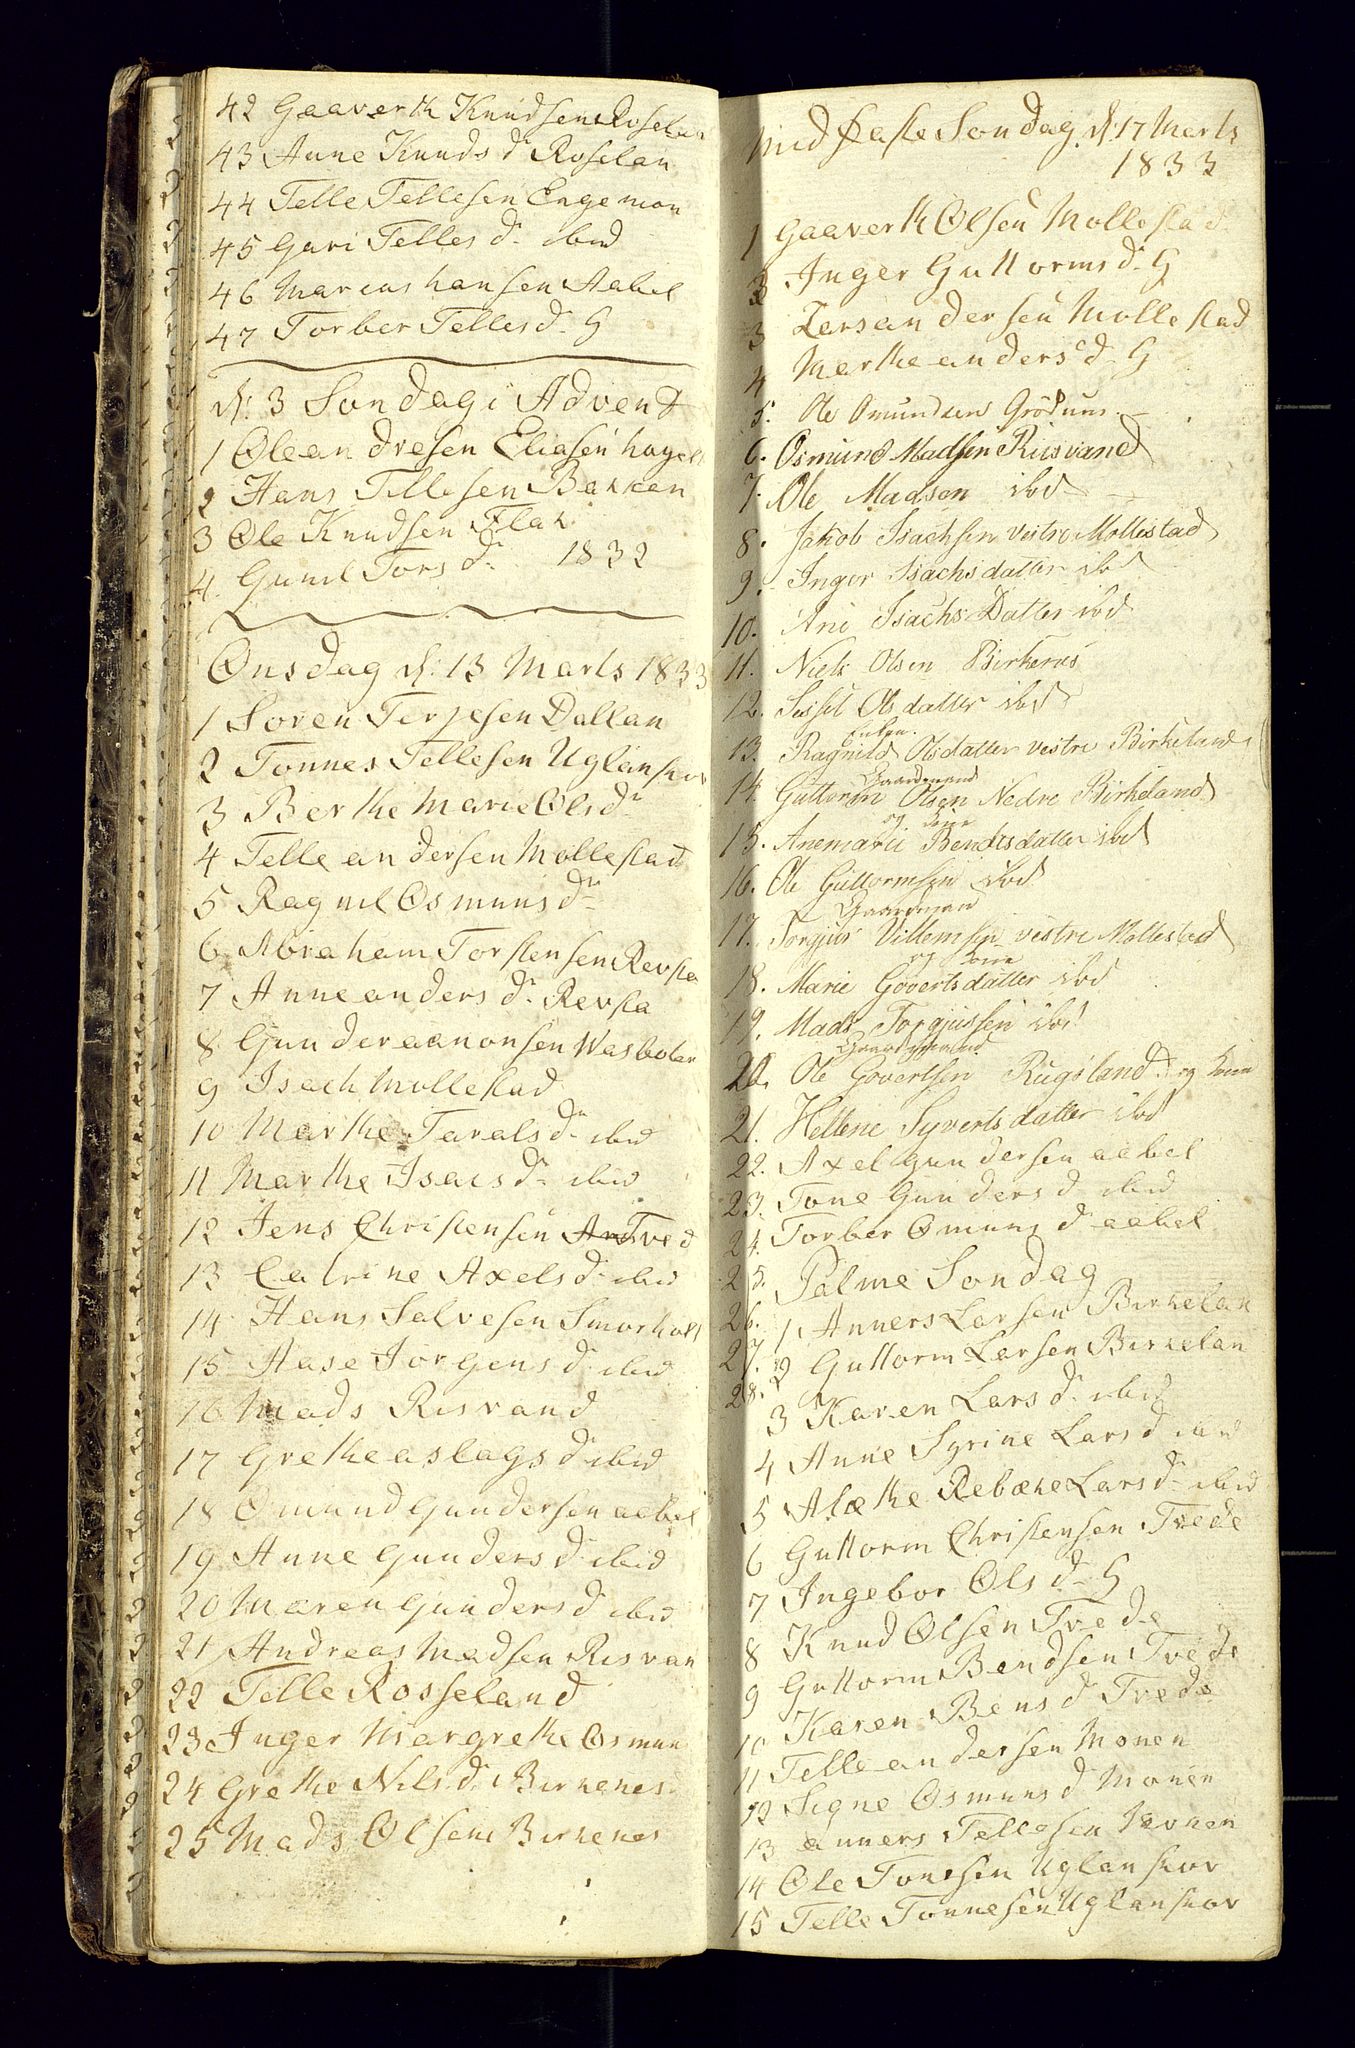 42 Gaaverth Knudsen Roselan
43 Anne Knuds d. Roselan
44 Telle Tellesen Engemon
45 Guri Telles d. ibid
46 Marcus hansen Aabel
47 Torber Telles d. G
d: 3 Søndag i Advent
1 Oleandresen Eliasen
2 Hans Tellesen Bakken
3 Ole Knudsen Flak
4. Gunil Tors d. 1832
Onsdag d: 13 Marts 1833
1 Soren Terjesen Dallan
2 Tonnes Tellesen Uglanskor
3 Berthe Marie Olsd.
4 Telle andersen Mollestad
5 Ragnil Osmuns d.
6 Abraham Torstensen Revsla
7 Anne anders d. Revsla
8 Gunder aanonsen
9 Isach Mollestad
10 Marthe Tarals d. ibid
11 Marthe Isacs d. ibid
12 Jens Christensen Tved
13 Catrine Axels d. ibid
14 Hans Salvesen Smorholt
15 Aase Jorgens d. ibid
16 Mads Risvand
17 Grethe aslags d. ibid
18 Omund Gundersen aabel
19 Anne Gunders d. ibid
20 Maren Gunders d. ibid
21 Andreas Madsen Risvan
22 Telle Rosseland
23 Inger Margrethe Osmun
24 Grethe Nils d. Birkenes
25 Mads Olsen Birkenes
Midfaste Søndag d: 17 Marts
1833
1 Gaaverth Olsen Mollestad
2 Inger Guttorms d. G
3 Lars andersen Mollestad
4 Marthe anders d. G
5. Ole Omundsen Grødum
6. Osmund Madsen Riisvand
7. Ole Madsen ibd
8. Jakob Isachsen vestre Mollestad
9. Inger Isachsdatter ibd
10. Ane Isachs Datter ibd
11. Niels Olsen Birkenes
12. Sissel Olsdatter ibd
Enken.
13. Ragnild Olsdatter vestre Birkeland
Gaardmand
14. Guttorm Olsen Nedre Birkeland
og Kone
15. Anemarie Bendtsdatter ibd
16. Ole Guttormsen ibd
Gaardmand
17. Torgius Villemsen vestre Mollestad
og Kone
18. Marie Govertsdatter ibd
19. Mads Torgiussen ibd
Gaardmand
20. Ole Govertsen Rugsland og Kone
21. Hellene Syvertsdatter ibd
22. Axel Gundersen aabel
23. Tone Gunders d. ibid
24. Torber Omuns d. aabel
25. Palme Søndag
26. 1 Anners Larsen Birkelan
27. 2 Guttorm Larsen Birkelan
28. 3 Karen Lars d. ibid
4 Anne Syrine Lars d. ibid
5 Alethe Rebække Lars d. ibid
6 Guttorm Christensen Trede
7 Ingebor Ols d. G
8 Knud Olsen Trede
9 Guttorm Bendsen Trede
10 Karen Bens d. Trede
11 Telle andersen Monen
12 Signe Osmuns d. Monen
13 anners Tellesen Monen
14 Ole Tonesen Uglanskor
15 Telle Tonnesen Uglanskor